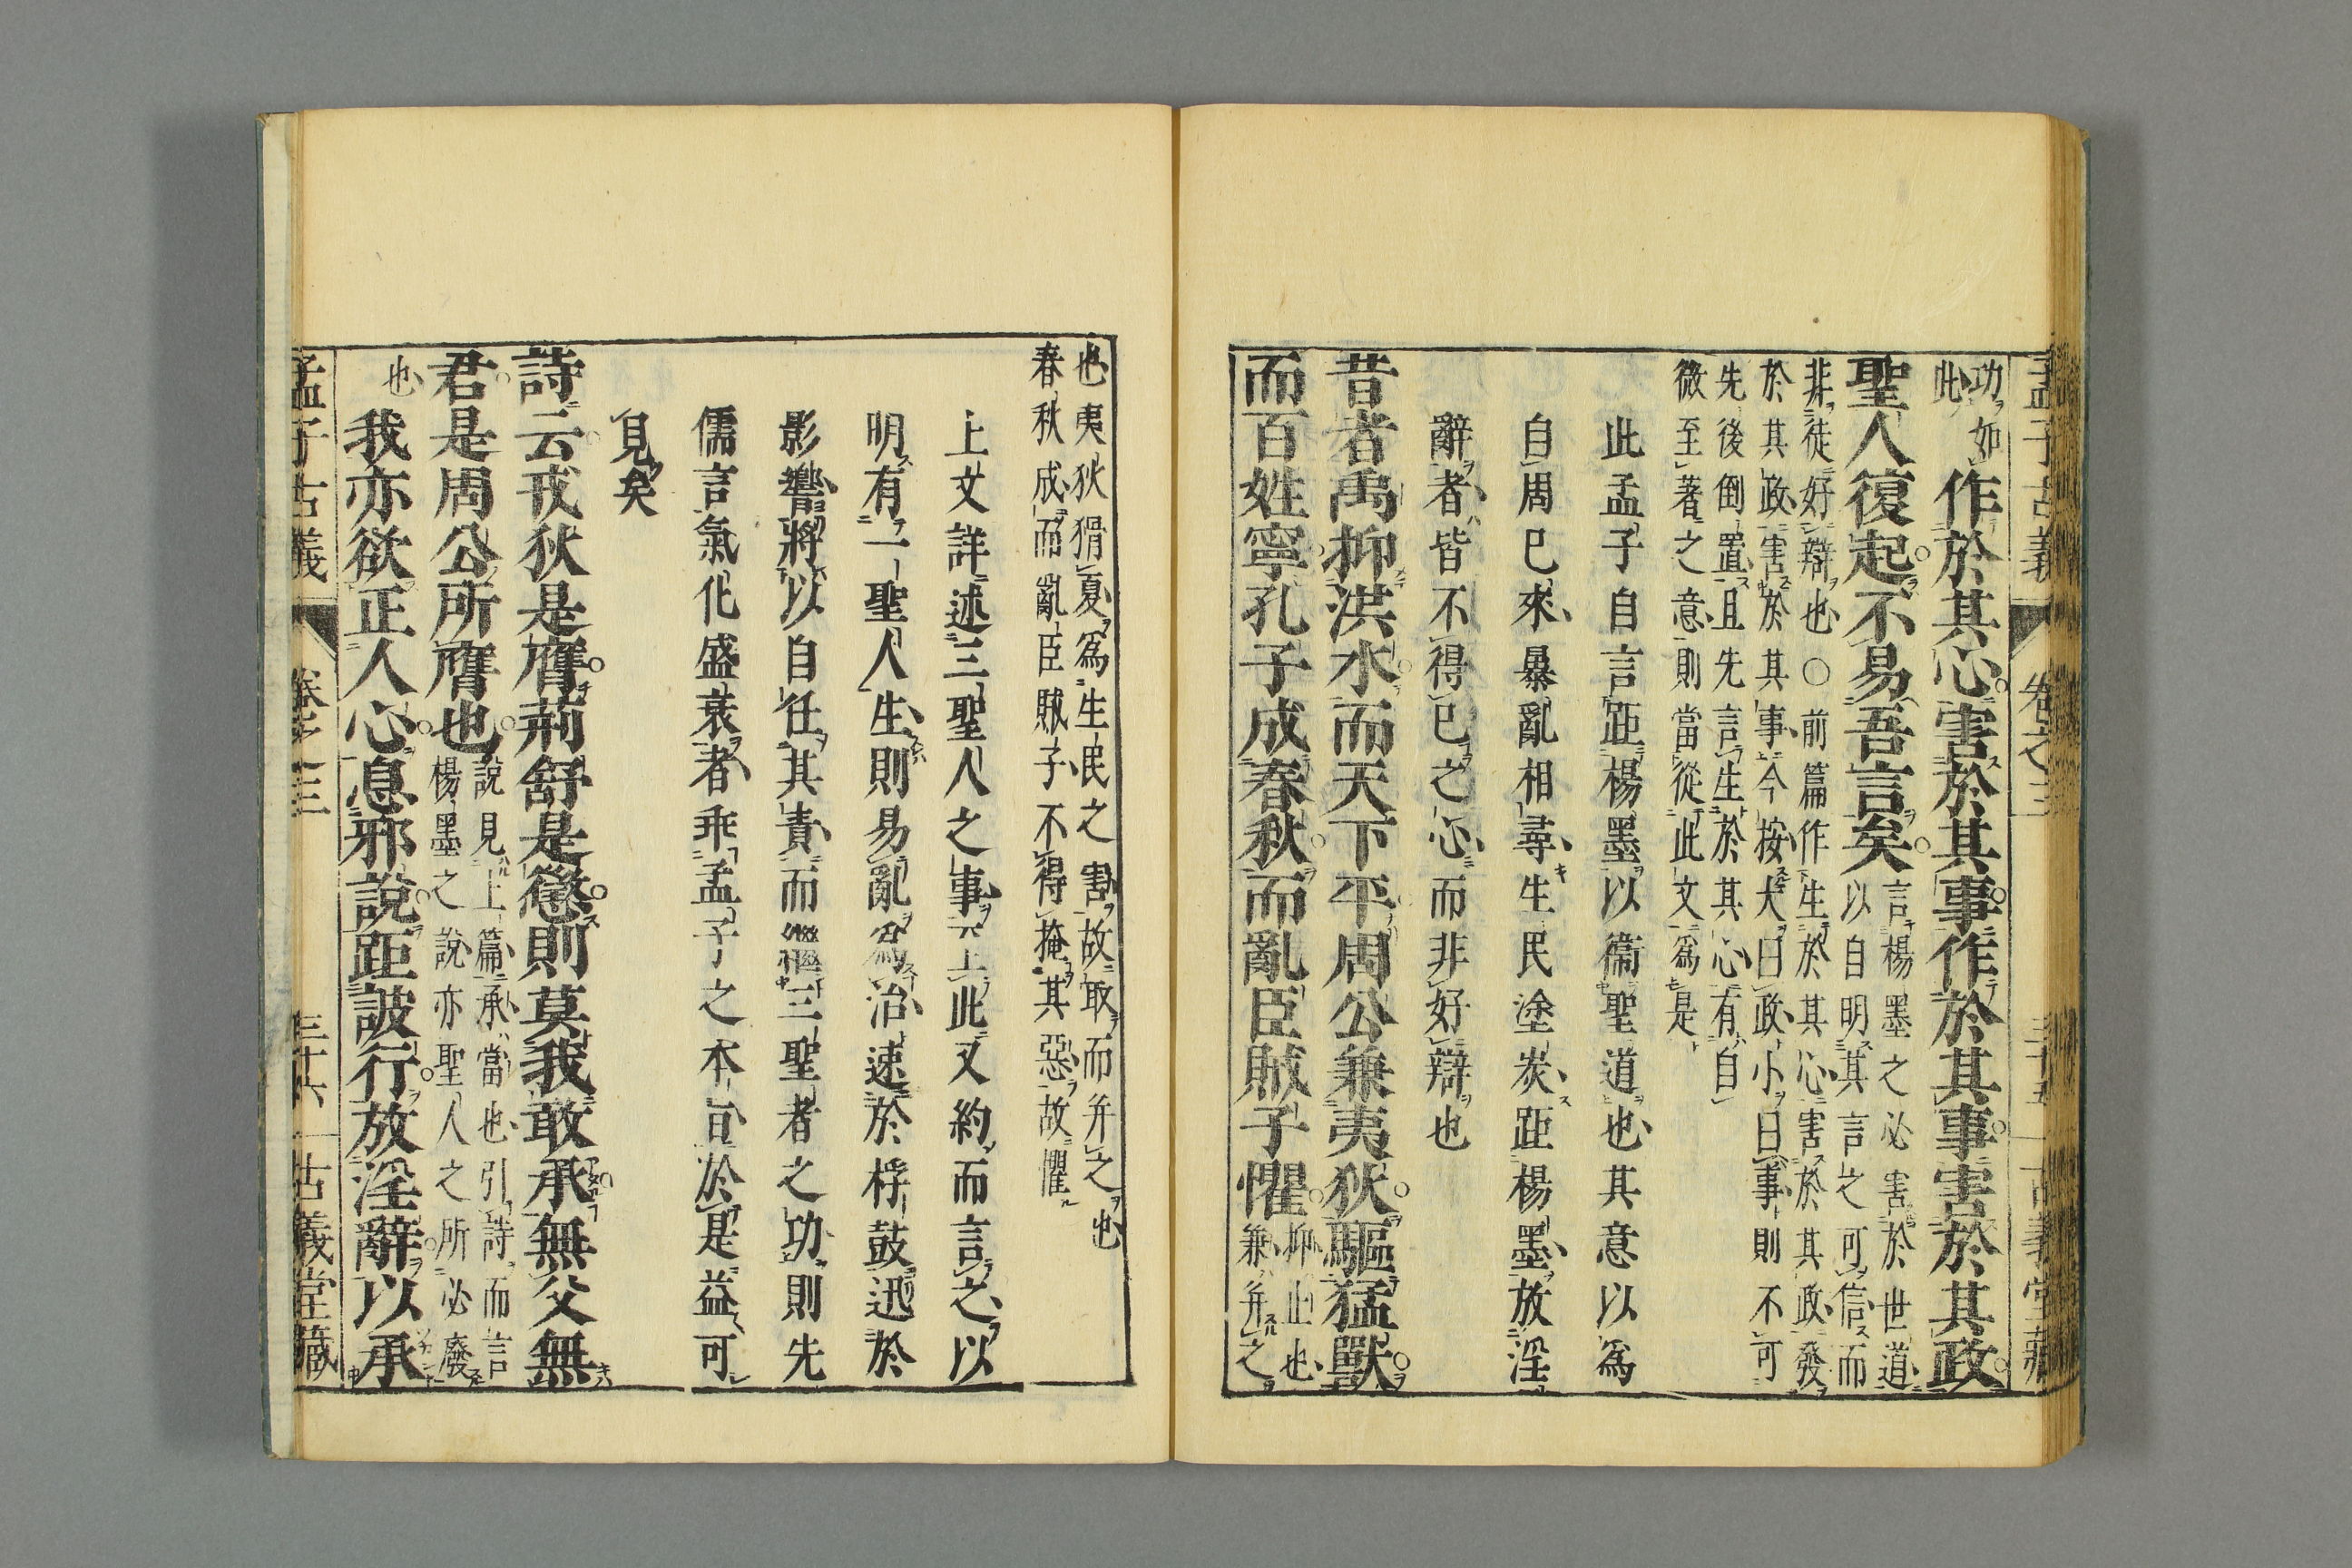 孟子古義　卷之三　三十五　古義堂藏
功如
此
作於其心害於其事作於其事害於其政
聖人復起不易吾言矣
言楊墨之必害於世道
以自明其言之可信而
非徒好辯也〇前篇作生於其心害於其政發
於其政害於其事今按大曰政小曰事則不可
先後倒置且先言生於其心有自
微至著之意則當從此文爲是
此孟子自言距楊墨以衞聖道也其意以爲
自周已來暴亂相尋生民塗炭距楊墨放淫
辭者皆不得已之心而非好辯也
昔者禹抑洪水而天下平周公兼夷狄驅猛獸
而百姓寧孔子成春秋而亂臣賊子懼
抑止也
兼并之
也夷狄猾夏爲生民之害故取而并之也
春秋成而亂臣賊子不得掩其惡故懼
上文詳述三聖人之事于上此又約而言之以
明有一聖人生則易亂爲治速於桴鼓迅於
影響將以自任其責而繼三聖者之功則先
儒言氣化盛衰者乖孟子之本旨於是益可
見矣
詩云戎狄是膺荊舒是懲則莫我敢承無父無
君是周公所膺也
說見上篇承當也引詩而言
楊墨之說亦聖人之所必廢
也
我亦欲正人心息邪說距詖行放淫辭以承
孟子古義　卷之三　三十六　古義堂藏